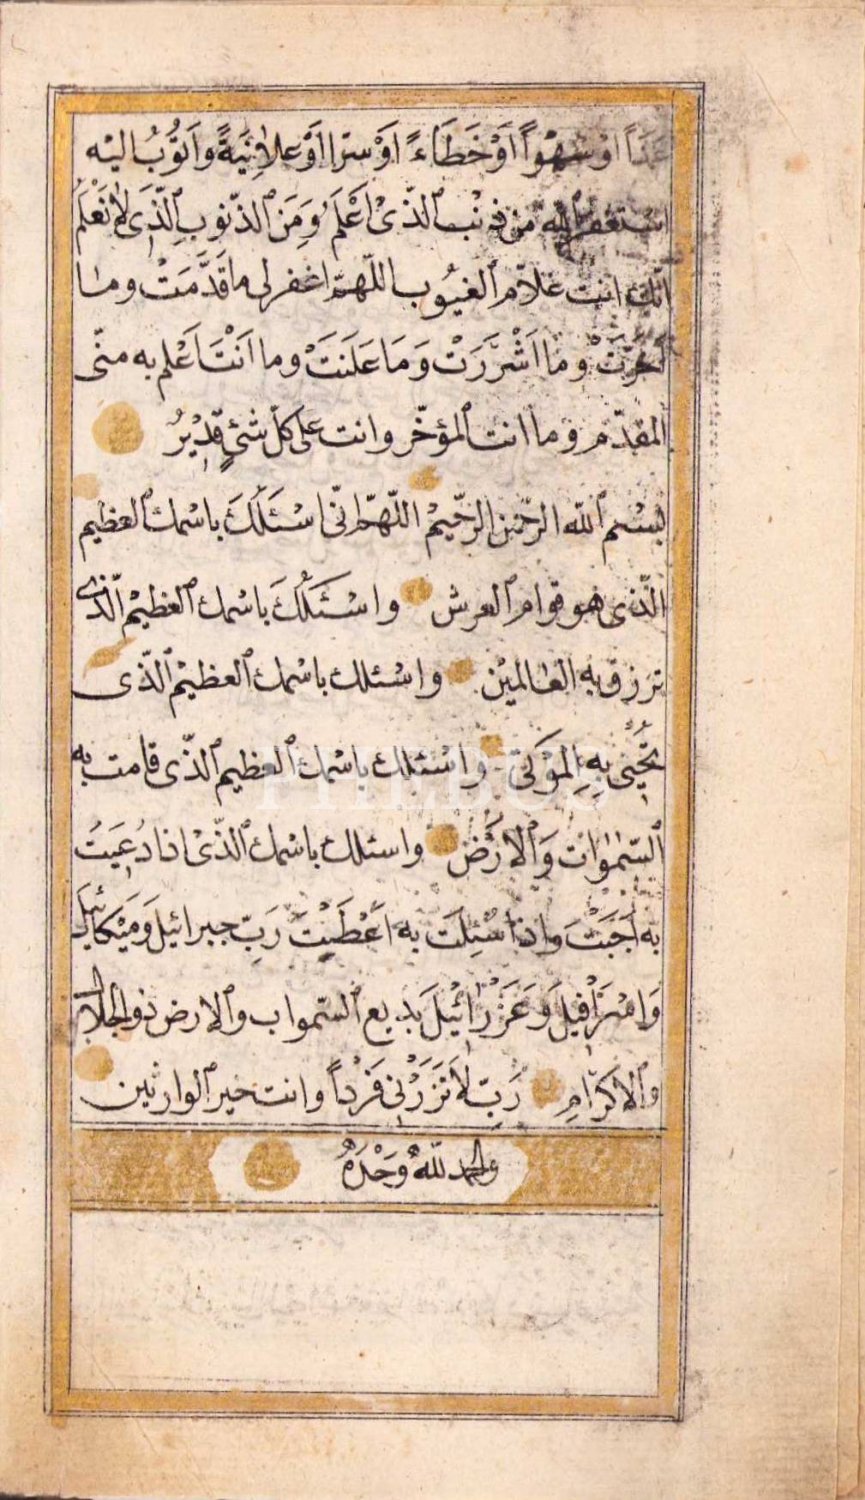 عَمَداً اَوْ سَهْواً اَوْ خَطَاءً اَوْ سِرّا اَوْ علانِيَةً وَاَتُوُبُ اليْه
استغفر الله من ذنْب الّذىْ اَعْلَمُ وَمِنَ الذّنوبِ الّذىَ لاٰ نَعْلَمُ
انّك انت علاّم الغيُوب اللّهمّ اغفر لى ما قَدَّمَتْ وما
اَخَّرَتْ وما اَشْرَرَتْ وَمَا عَلَنَتَ وما اَنْتَ اَعْلم به منّى
المقدّم وما انت المؤخّر وانت على كلّ شئٍ قَدِيْرُ
بسْم الله الرحْمن الرحّيمْ اللّهمّ انّى اسْئَلُكَ باسْمك العظيم
الّذى هو قوام العرش واسْئَلُكَ باسْمك العظيْم الّذى
ترزق به العالميْن واسْئلك باسْمك العظيْم الّذى
تُحْيٖى بِه الِمَوْتٰى واسْئلك باسْمك العظيم الّذى قامت به
السّمٰوٰات وَالْارَْض واسئلك باسْمك الّذىْ اذا دُعِيَتَ
به اَجَبَتْ واذا سُئِلَت به اَعْطَيْتَ رَبّ جبرائيل وَمَيْكائيل
وَاِسْرَافِيلَ وَعَزْرٰائِيْلَ بديع السّمواب والارض ذوالجلال
والاكرَام رَبّ لاَ تَزَرْنِى فَرْداً وانت خير الوارثين
والحمد للهِ وَحْدَهُ
PHEBUS